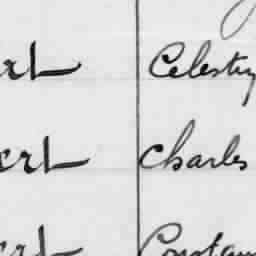 ert Celestin
ert Charles
ert Constan